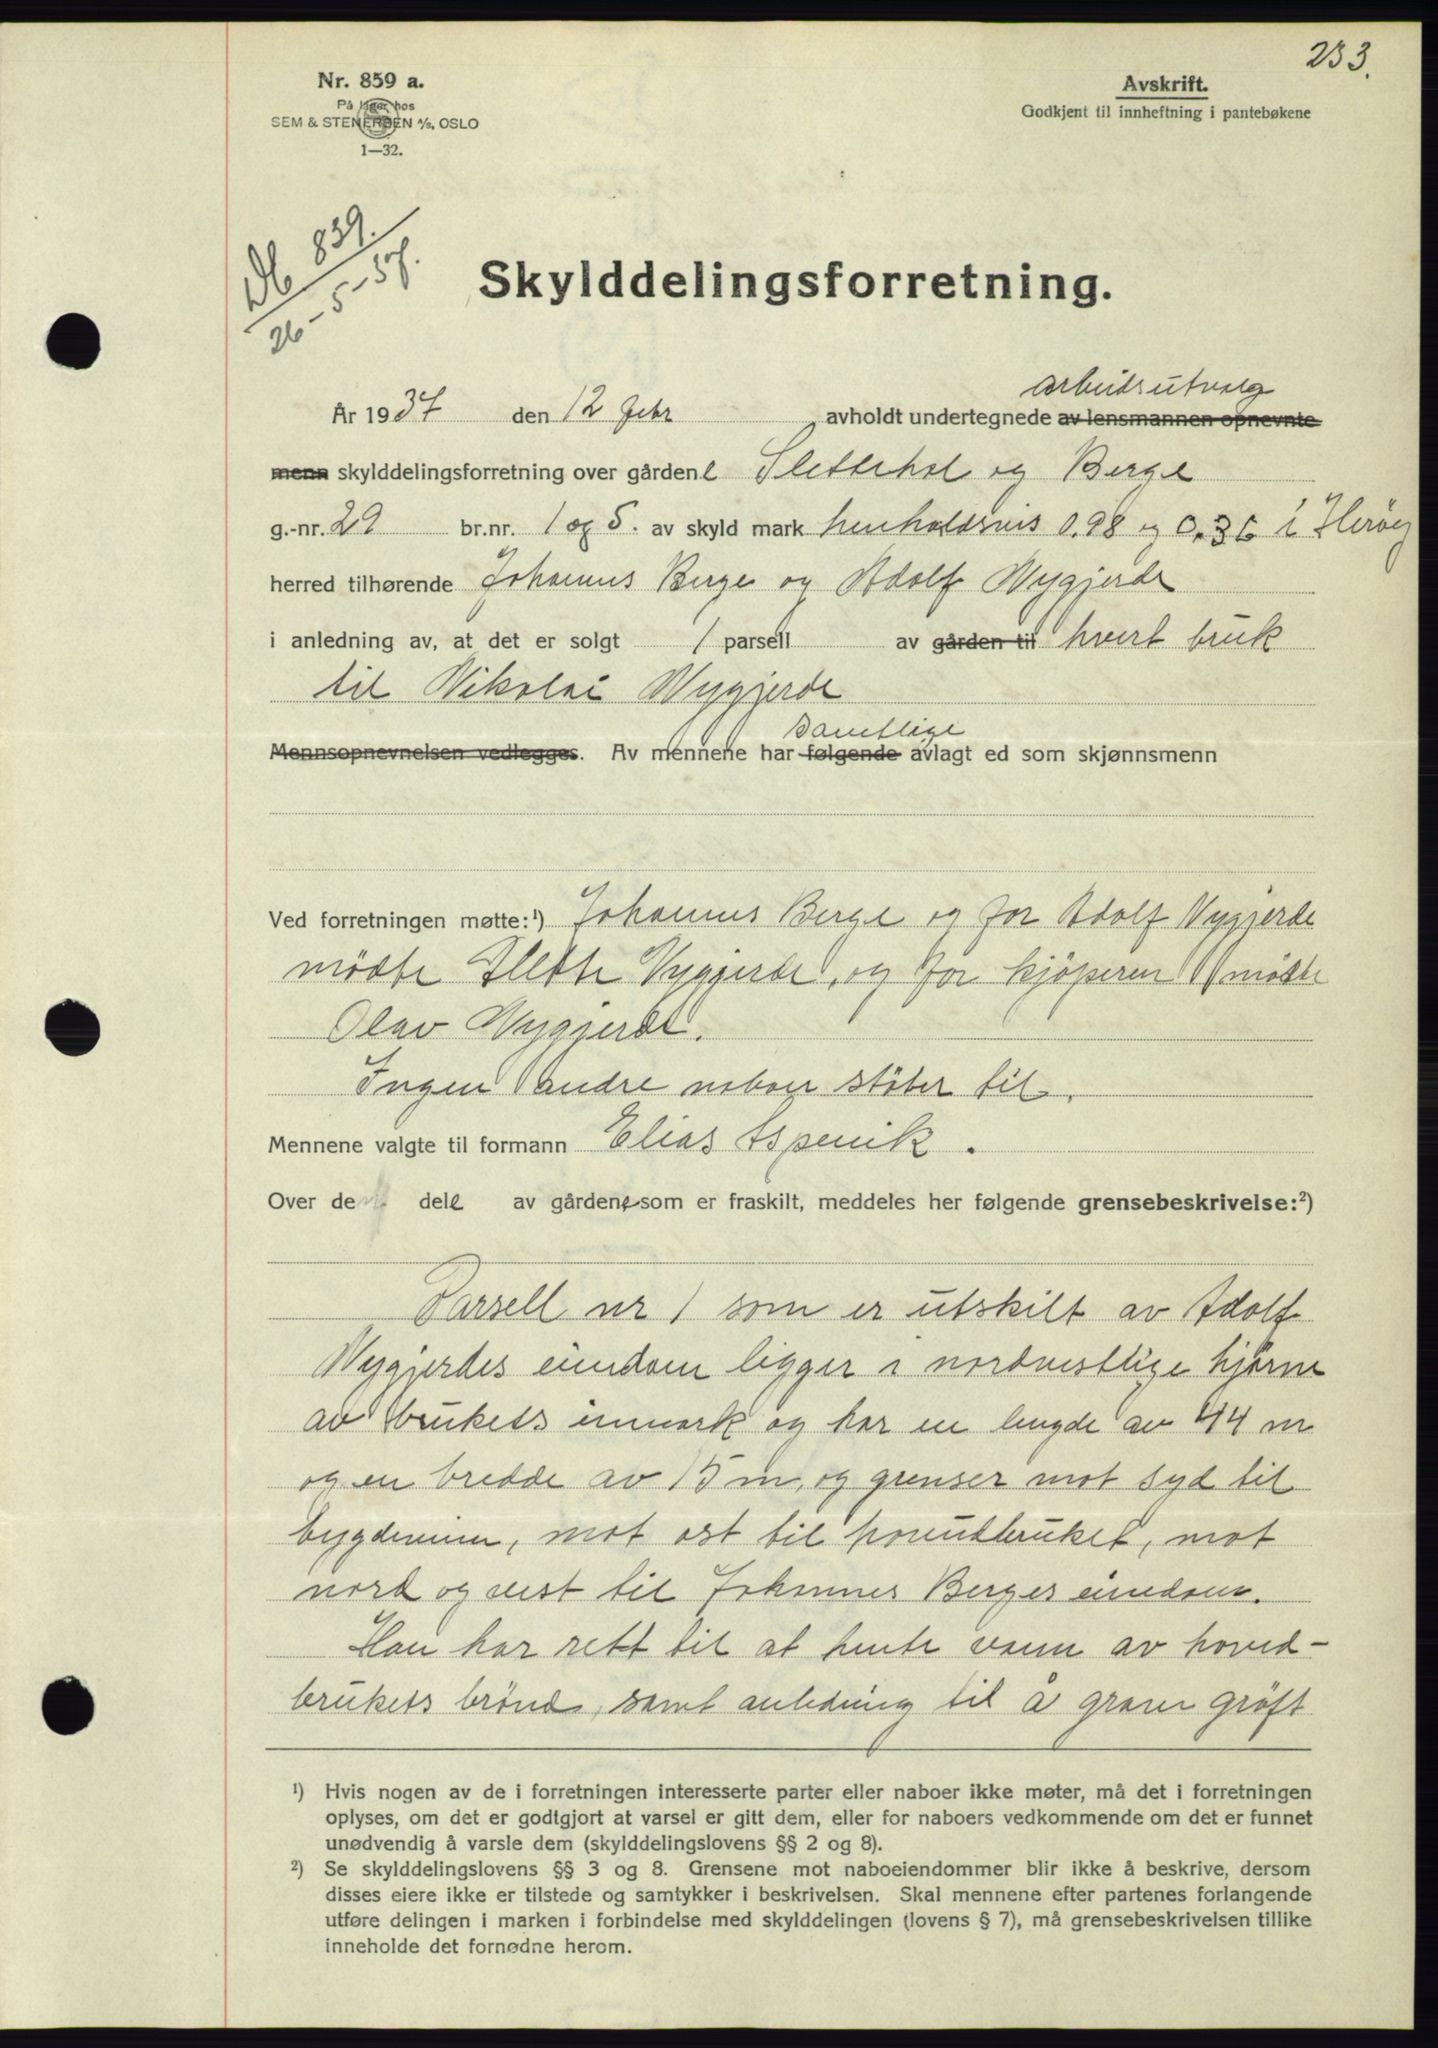 233.
Nr. 859 a.
På lager hos
SEM & STENERSEN A/S, OSLO
1—32.
Avskrift.
Godkjent til innheftning i pantebøkene
Db 839.
26-5-37.
Skylddelingsforretning.
arbeidsutvalg
År 1937 den 12 febr avholdt undertegnede av lensmannen opnevnte
menn skylddelingsforretning over gårdene Sletterhol og Berge
g.-nr. 29 br.nr. 1 og 5. av skyld mark henholdsvis 0.98 og 0.36 i Herøy
herred tilhørende Johannes Berge og Adolf Nygjerde
i anledning av, at det er solgt 1 parsell av gården til hvert bruk
til Nikolai Nygjerde
samtlige
Mennsopnevnelsen vedlegges. Av mennene har følgende avlagt ed som skjønnsmenn
Ved forretningen møtte:¹) Johannes Berge og for Adolf Nygjerde
mödte Nygjerde, og for kjöperen mödte
Olav Nygjerde.
Ingen andre naboer stöter til.
Mennene valgte til formann Elias Aspevik.
Over de dele av gårdene som er fraskilt, meddeles her følgende grensebeskrivelse:²)
Parsell nr 1 som er utskilt av Adolf
Nygjerdes eiendom ligger i nordvestlige hjörne
av brukets innmark og har en lengde av 44 m
og en bredde av 15 m, og grenser mot syd til
bygdeveien, mot ost til hovedbruket, mot
nord og vest til Johannes Berges eiendom.
Han har rett til at hente vann av hoved-
brukets brönd, samt anledning til å grave gröft
¹) Hvis nogen av de i forretningen interesserte parter eller naboer ikke møter, må det i forretningen
oplyses, om det er godtgjort at varsel er gitt dem, eller for naboers vedkommende om det er funnet
unødvendig å varsle dem (skylddelingslovens §§ 2 og 8).
²) Se skylddelingslovens §§ 3 og 8. Grensene mot naboeiendommer blir ikke å beskrive, dersom
disses eiere ikke er tilstede og samtykker i beskrivelsen. Skal mennene efter partenes forlangende
utføre delingen i marken i forbindelse med skylddelingen (lovens § 7), må grensebeskrivelsen tillike
inneholde det fornødne herom.